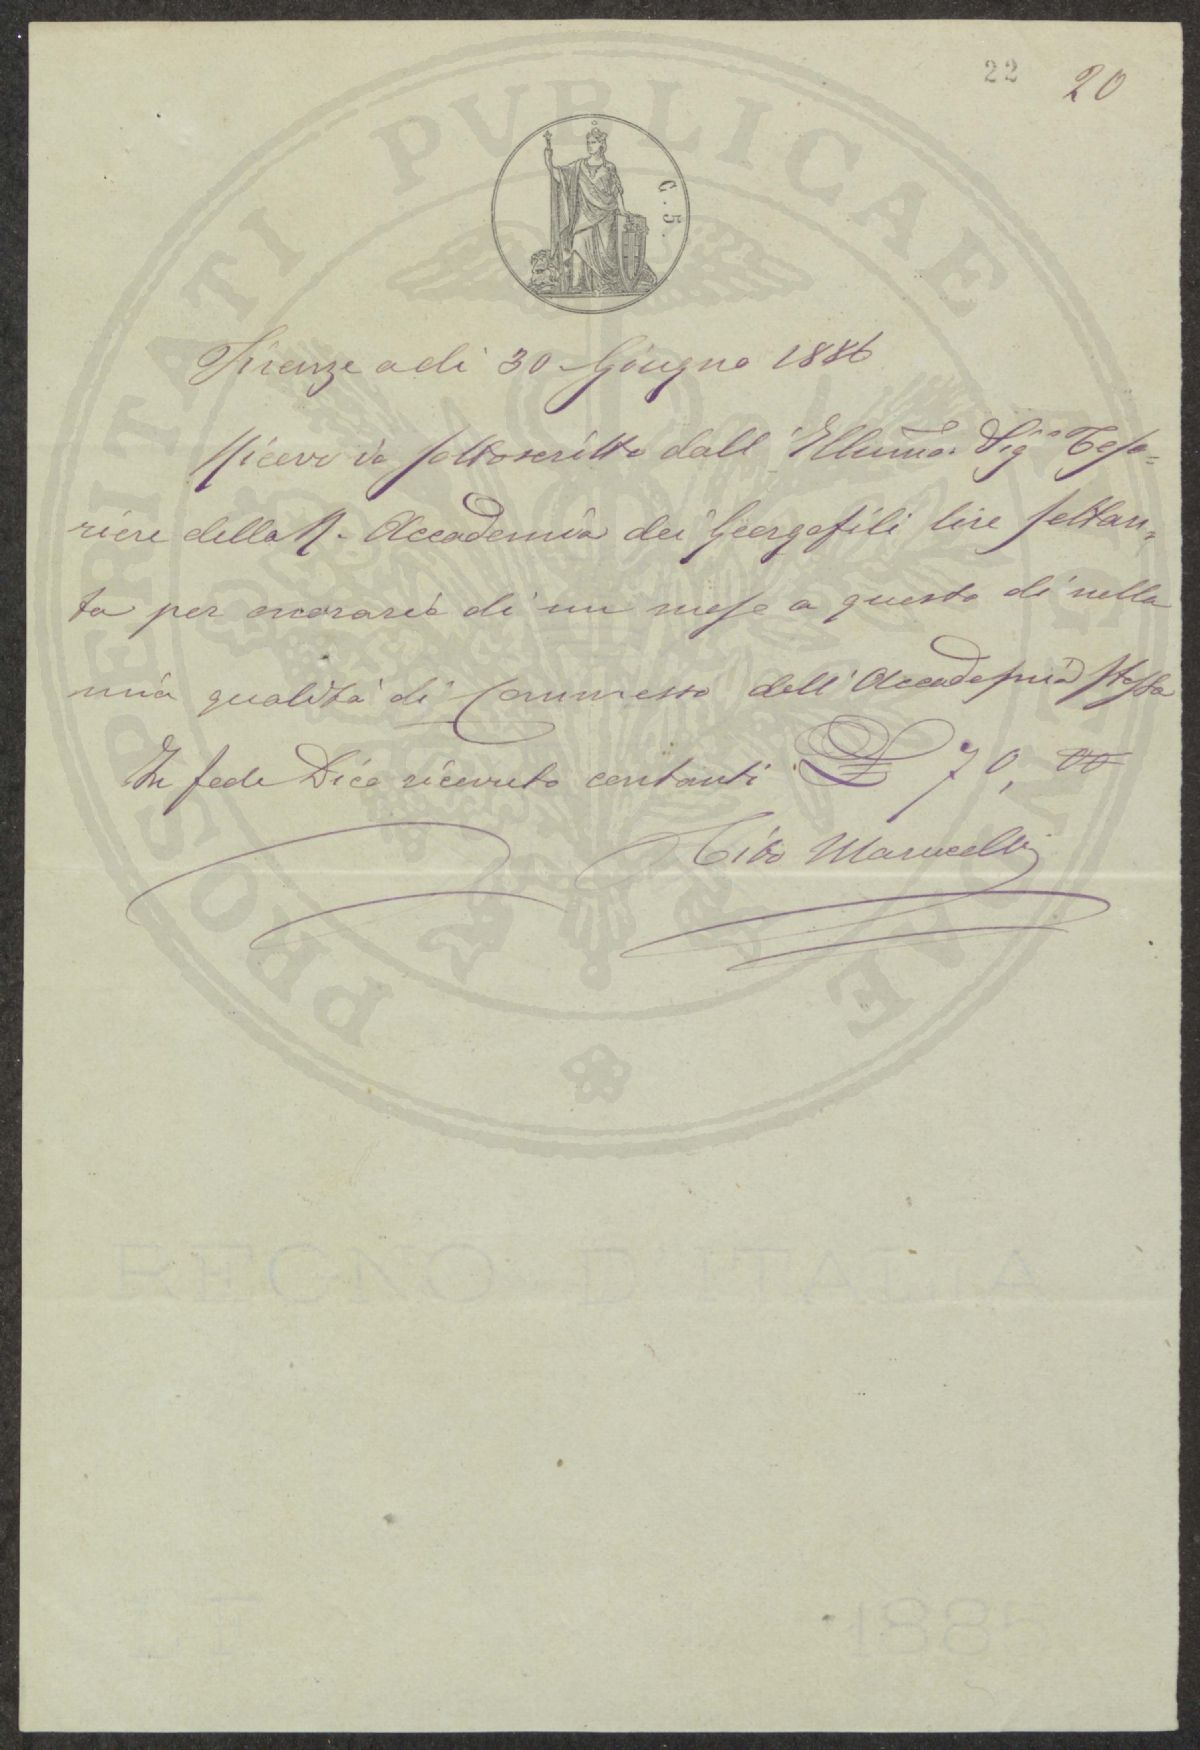 22 20
PROSPERITATI PVBLICAE
C. 5.
Firenze adi 30 Giugno 1886
Ricevo io sottoscritto dall' Illumo. Sigr Teso=
riere della R. Accademia dei Georgofili lire settan=
ta per onorario di un mese a questo dì nella
mia qualità di Commesso dell' Accademia stessa
In fede Dico ricevuto contanti £ 70, 00
Tito Marucelli
REGNO D'ITALIA
1885